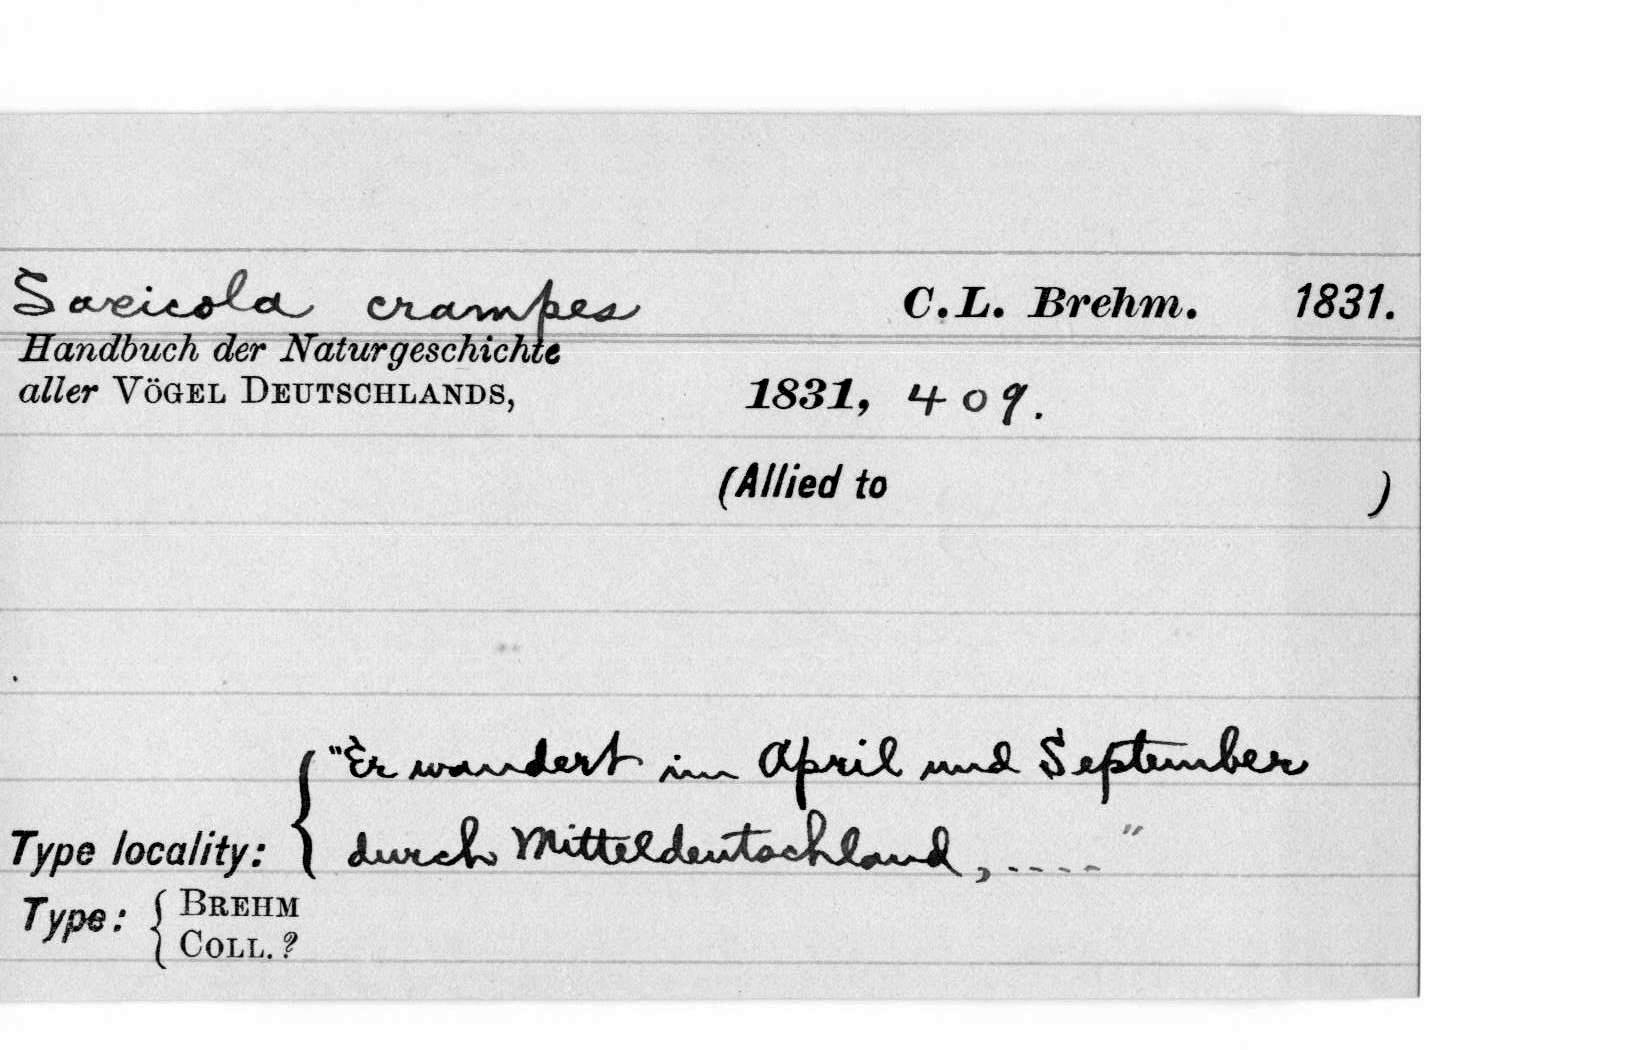 Saxicola crampes C.L. Brehm. 1831.
Handbuch der Naturgeschichte
aller VÖGEL DEUTSCHLANDS, 1831, 409.
(Allied to )
"Er wandert im April und September
Type locality: { durch Mitteldeutschland, ...."
Type: { BREHM
COLL. ?